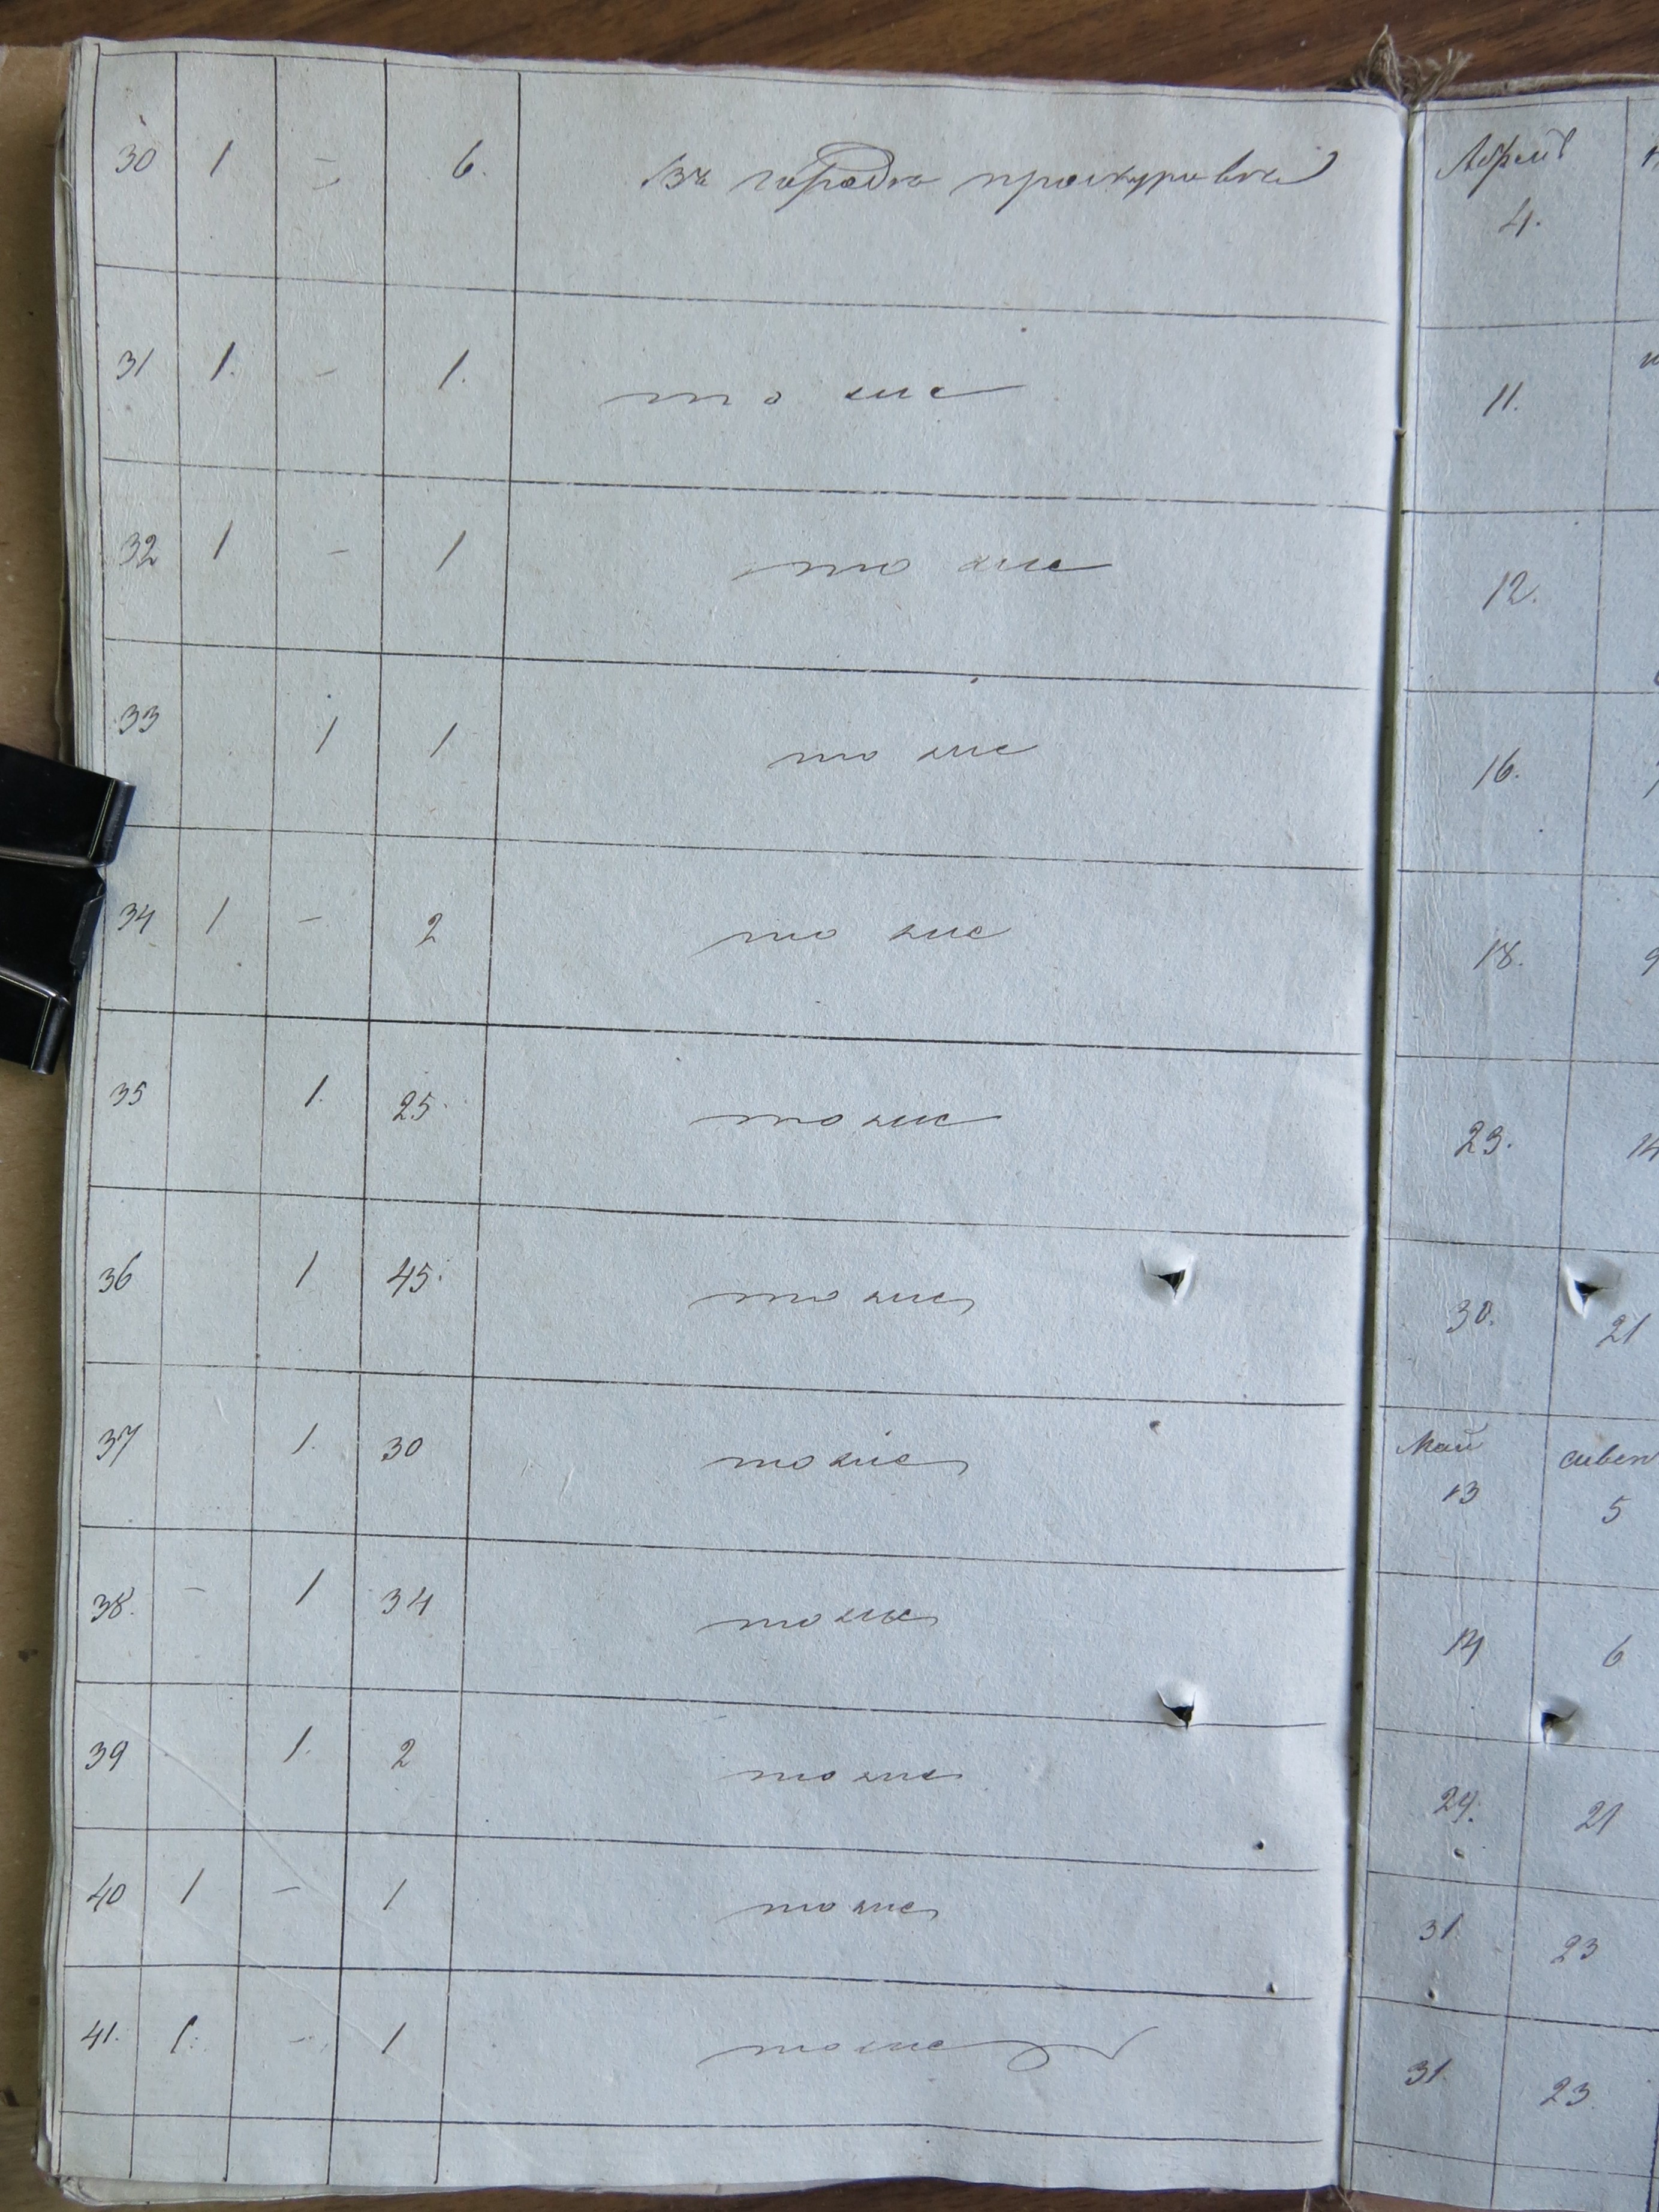 30 1 – 6. въ городѣ проскуровѣ
31 1. – 1. то же
32 1 – 1 то же
33 1 1 то же
34 1 – 2 то же
35 1. 25 то же
36 1 45. то же
37 1. 30 то же
38. – 1 34 то же
39 1. 2 то же
40 1 – 1 то же
41. 1. – 1 то же
4.
11.
12.
16.
18. 9
23. 14
30. 21
Май
13 5
14 6
24. 21
31 23
31 23